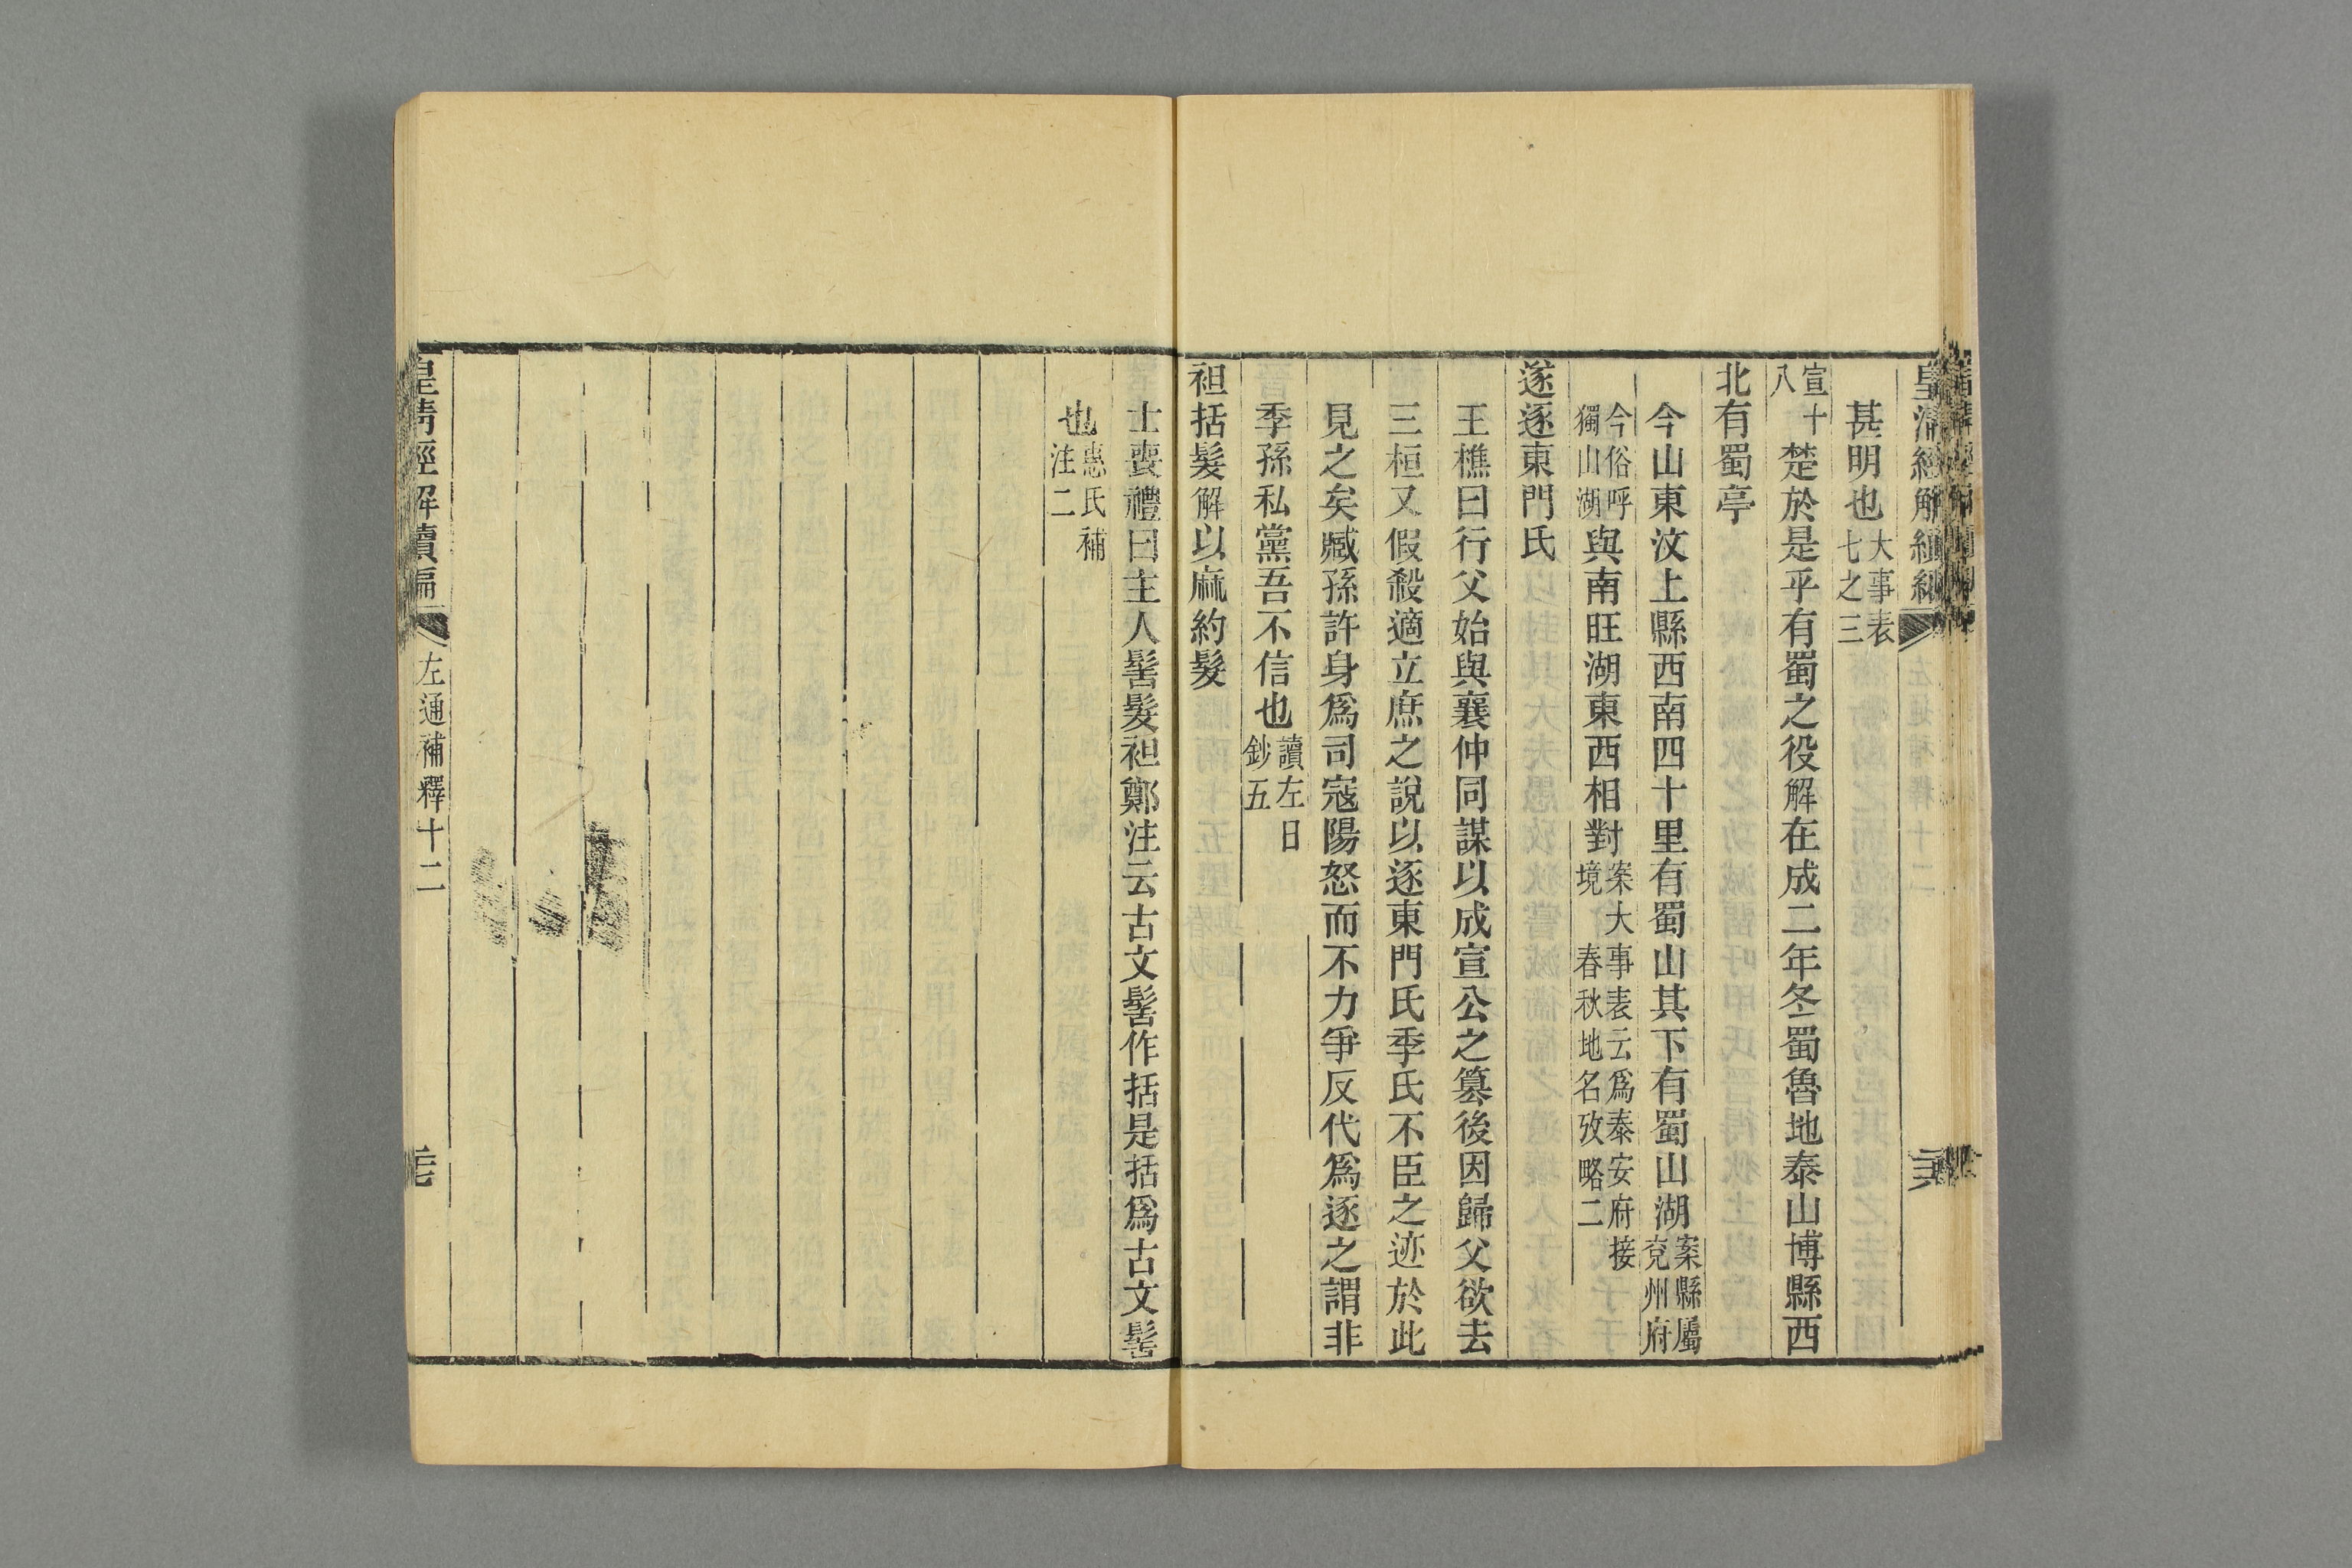 甚明也大事表七之三
宣十八楚於是乎有蜀之役解在成二年冬蜀魯地泰山博縣西
北有蜀亭
今山東汶上縣西南四十里有蜀山其下有蜀山湖案縣屬兗州府
今俗呼獨山湖與南旺湖東西相對案大事表云爲泰安府接境 春秋地名攷略二
遂逐東門氏
王樵曰行父始與襄仲同謀以成宣公之篡後因歸父欲去
三桓又假殺適立庶之說以逐東門氏季氏不臣之迹於此
見之矣臧孫許身爲司寇陽怒而不力爭反代爲逐之謂非
季孫私黨吾不信也讀左日鈔五
袒括髮解以麻約髮
士喪禮曰主人髺髮袒鄭注云古文髺作括是括爲古文髺
也惠氏補注二
皇清經解續編
左通補釋十二